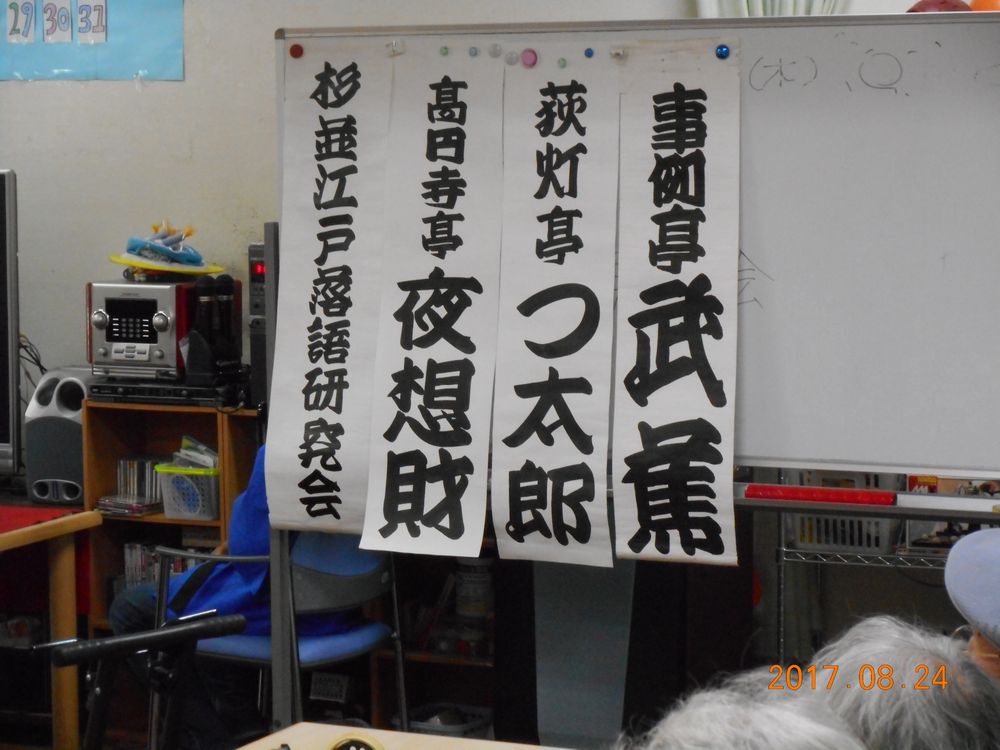 事例亭 武蕉
荻灯亭 つ太郎
高円寺亭 夜想財
杉並江戸落語研究会
29 30 31
(木)
会
2017.08.24